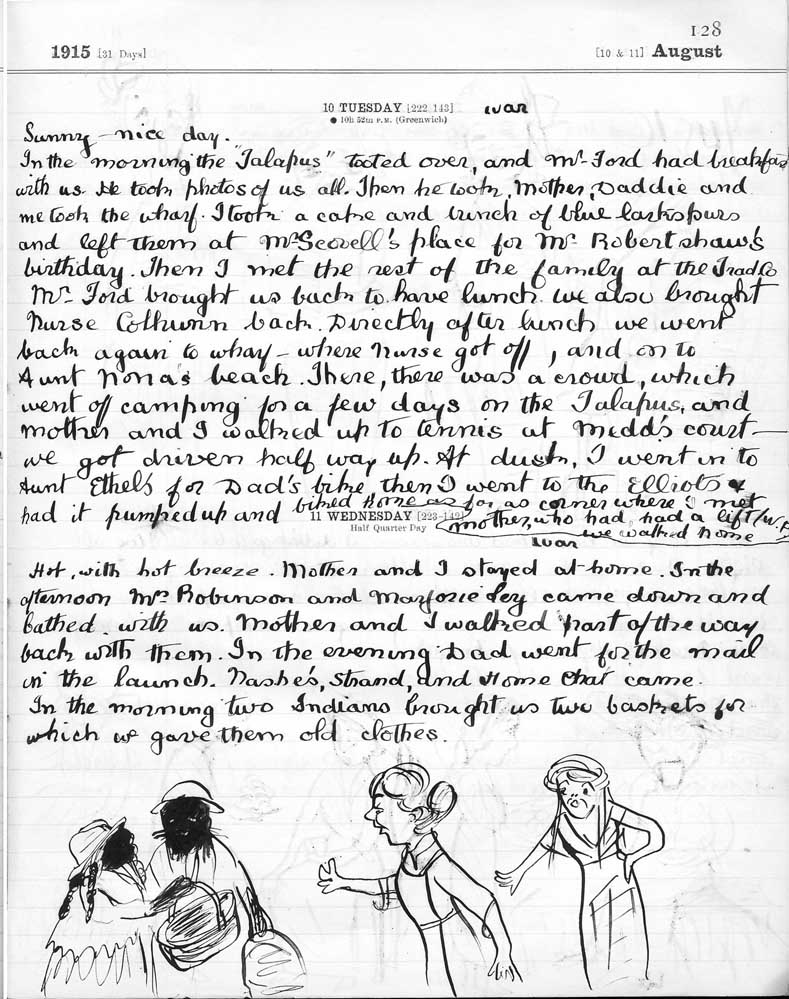 128
1915 [31 Days] [10 & 11] August
10 TUESDAY [222-143] war
● 10h 52m P.M. (Greenwich)
Sunny - nice day.
In the morning the "Talapus" tooted over, and Mr Ford had breakfast
with us. He took photos of us all. Then he took, Mother, Daddie and
me took the wharf. I took a cake and bunch of blue larkspurs
and left them at McScovell's place for Mr Robertshaw's
birthday. Then I met the rest of the family at the Trad Co
Mr Ford brought us back to have lunch. we also brought
Nurse Colhwnn back. Directly after lunch we went
back again to wharf - where Nurse got off, and on to
Aunt Nona's beach. There, there was a crowd, which
went off camping for a few days on the Talapus, and
mother and I walked up to tennis at Medd's court —
we got driven half way up. At dusk, I went in to
Aunt Ethel's for Dad's bike then I went to the Elliots &
had it pumped up and biked home as far as corner where I met
11 WEDNESDAY [223-142] mother, who had, had a lift
Half Quarter Day we walked home
war
Hot, with hot breeze. Mother and I stayed at home. In the
afternoon Mrs Robinson and Marjorie Ley came down and
bathed with us. Mother and I walked part of the way
back with them. In the evening Dad went for the mail
in the launch. Nashe's, Strand, and Home Chat came.
In the morning two Indians brought us two baskets for
which we gave them old clothes.